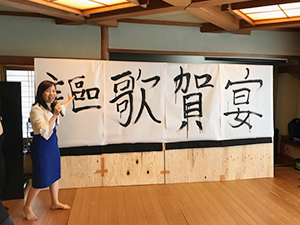 謳歌賀宴